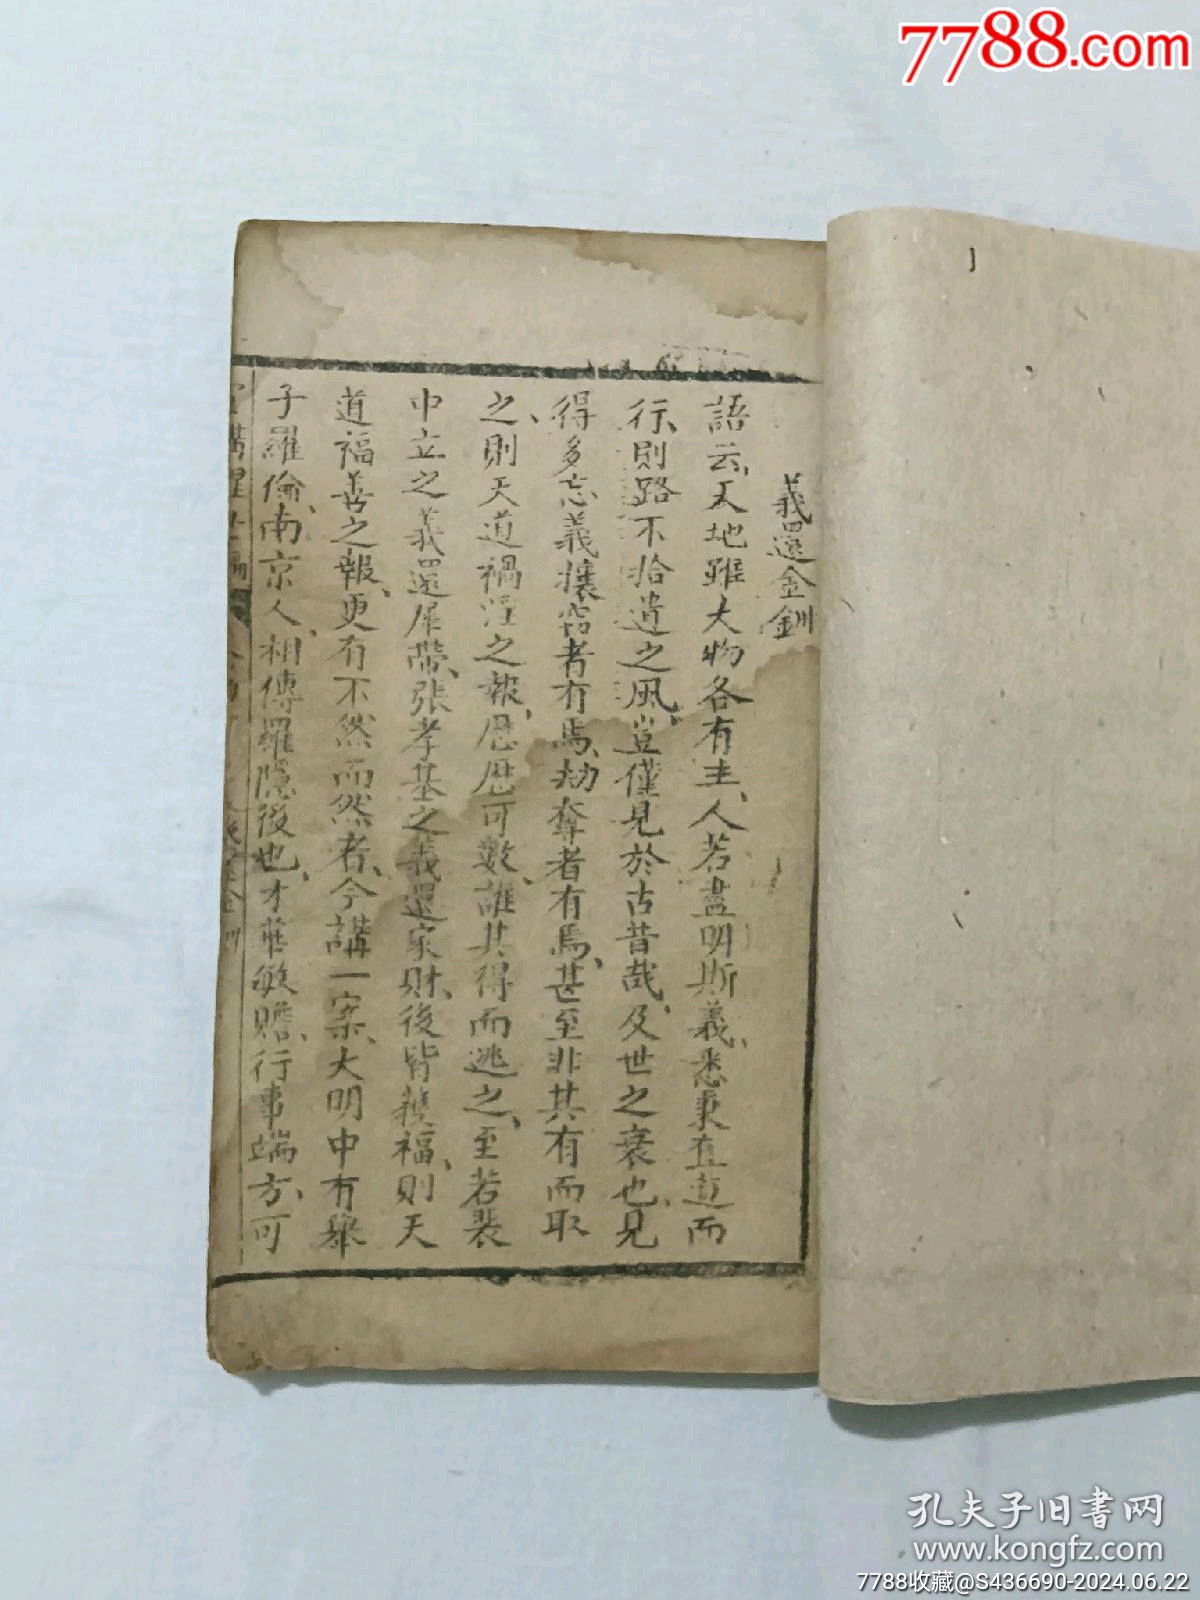 7788.com
義還金釧
語云、天地雖大物各有主、人若盡明斯義、悉秉直道而
行、則路不拾遺之風、豈僅見於古昔哉、及世之衰也、見
得多忘義攘窃者有焉、劫奪者有焉、甚至非其有而取
之、則天道禍淫之報、歷歷可數、誰其得而逃之、至若裴
中立之義還犀帶、張孝基之義還家財、後皆獲福、則天
道福善之報、更有不然而然者、今講一案、大明中有舉
子羅倫、南京人、相傳羅隱後也、才華敏贍、行事端方、可
講醒世編
孔夫子旧書网
www.kongfz.com
7788收藏@S436690-2024.06.22